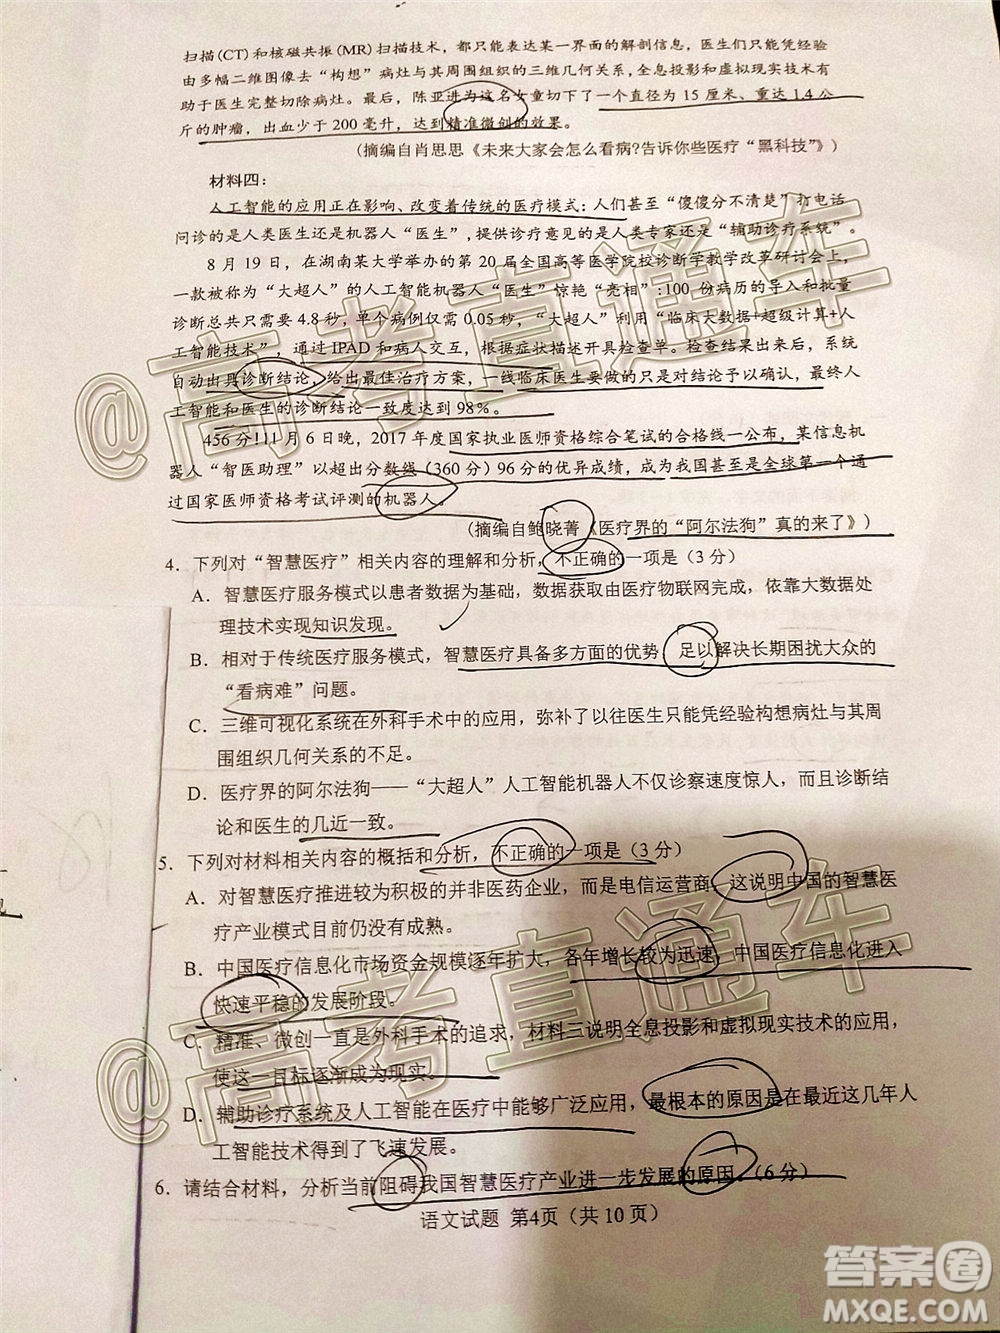 扫描(CT)和核磁共振(MR)扫描技术，都只能表达某一界面的解剖信息，医生们只能凭经验
由多幅二维图像去“构想”病灶与其周围组织的三维几何关系，全息投影和虚拟现实技术有
助于医生完整切除病灶。最后，陈亚进为这名女童切下了一个直径为15厘米、重达1.4公
斤的肿瘤，出血少于200毫升，达到精准微创的效果。
(摘编自肖思思《未来大家会怎么看病?告诉你些医疗“黑科技”》)
材料四：
人工智能的应用正在影响、改变着传统的医疗模式：人们甚至“傻傻分不清楚”打电话
问诊的是人类医生还是机器人“医生”，提供诊疗意见的是人类专家还是“辅助诊疗系统”。
8月19日，在湖南某大学举办的第20届全国高等医学院校诊断学教学改革研讨会上，
一款被称为“大超人”的人工智能机器人“医生”惊艳“亮相”:100份病历的导入和批量
诊断总共只需要4.8秒，单个病例仅需0.05秒，“大超人”利用“临床大数据+超级计算+人
工智能技术”，通过IPAD和病人交互，根据症状描述开具检查单。检查结果出来后，系统
自动出具诊断结论，给出最佳治疗方案，一线临床医生要做的只是对结论予以确认，最终人
工智能和医生的诊断结论一致度达到98%。
456分!11月6日晚，2017年度国家执业医师资格综合笔试的合格线一公布，某信息机
器人“智医助理”以超出分数线(360分)96分的优异成绩，成为我国甚至是全球第一个通
过国家医师资格考试评测的机器人。
(摘编自鲍晓菁《医疗界的“阿尔法狗”真的来了》)
4．下列对“智慧医疗”相关内容的理解和分析，不正确的一项是(3分)
A．智慧医疗服务模式以患者数据为基础，数据获取由医疗物联网完成，依靠大数据处
理技术实现知识发现。
B．相对于传统医疗服务模式，智慧医疗具备多方面的优势，足以解决长期困扰大众的
“看病难”问题。
C．三维可视化系统在外科手术中的应用，弥补了以往医生只能凭经验构想病灶与其周
围组织几何关系的不足。
D．医疗界的阿尔法狗——“大超人”人工智能机器人不仅诊察速度惊人，而且诊断结
论和医生的几近一致。
5．下列对材料相关内容的概括和分析，不正确的一项是(3分)
A．对智慧医疗推进较为积极的并非医药企业，而是电信运营商，这说明中国的智慧医
疗产业模式目前仍没有成熟。
B．中国医疗信息化市场资金规模逐年扩大，各年增长较为迅速，中国医疗信息化进入
快速平稳的发展阶段。
C．精准、微创一直是外科手术的追求，材料三说明全息投影和虚拟现实技术的应用，
使这一目标逐渐成为现实。
D．辅助诊疗系统及人工智能在医疗中能够广泛应用，最根本的原因是在最近这几年人
工智能技术得到了飞速发展。
6．请结合材料，分析当前阻碍我国智慧医疗产业进一步发展的原因。(6分)
语文试题 第4页（共10页）
@高考直通车
@高考直通车
答案圈
MXQE.COM